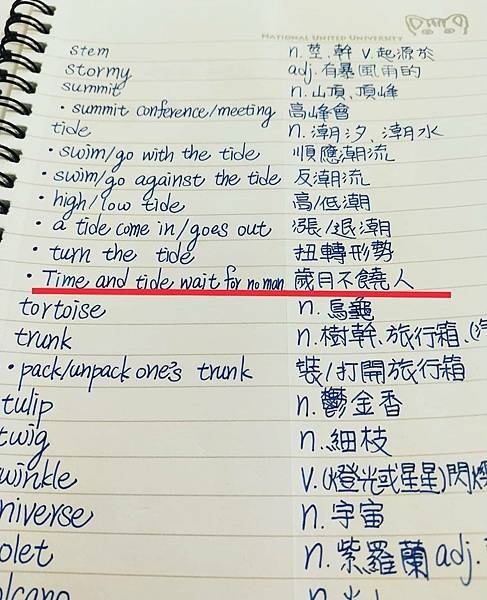 NATIONAL UNITED UNIVERSITY
stem n.莖、幹 v.起源於
stormy adj.有暴風雨的
summit n.山頂、頂峰
・summit conference/meeting 高峰會
tide n.潮汐、潮水
・swim/go with the tide 順應潮流
・swim/go against the tide 反潮流
・high/low tide 高/低潮
・a tide come in/goes out 漲/退潮
・turn the tide 扭轉形勢
・Time and tide wait for no man 歲月不饒人
tortoise n.烏龜
trunk n.樹幹、旅行箱、(汽
・pack/unpack one's trunk 裝/打開旅行箱
tulip n.鬱金香
twig n.細枝
winkle v.(燈光或星星)閃爍
niverse n.宇宙
olet n.紫羅蘭 adj.
olcano n.火山